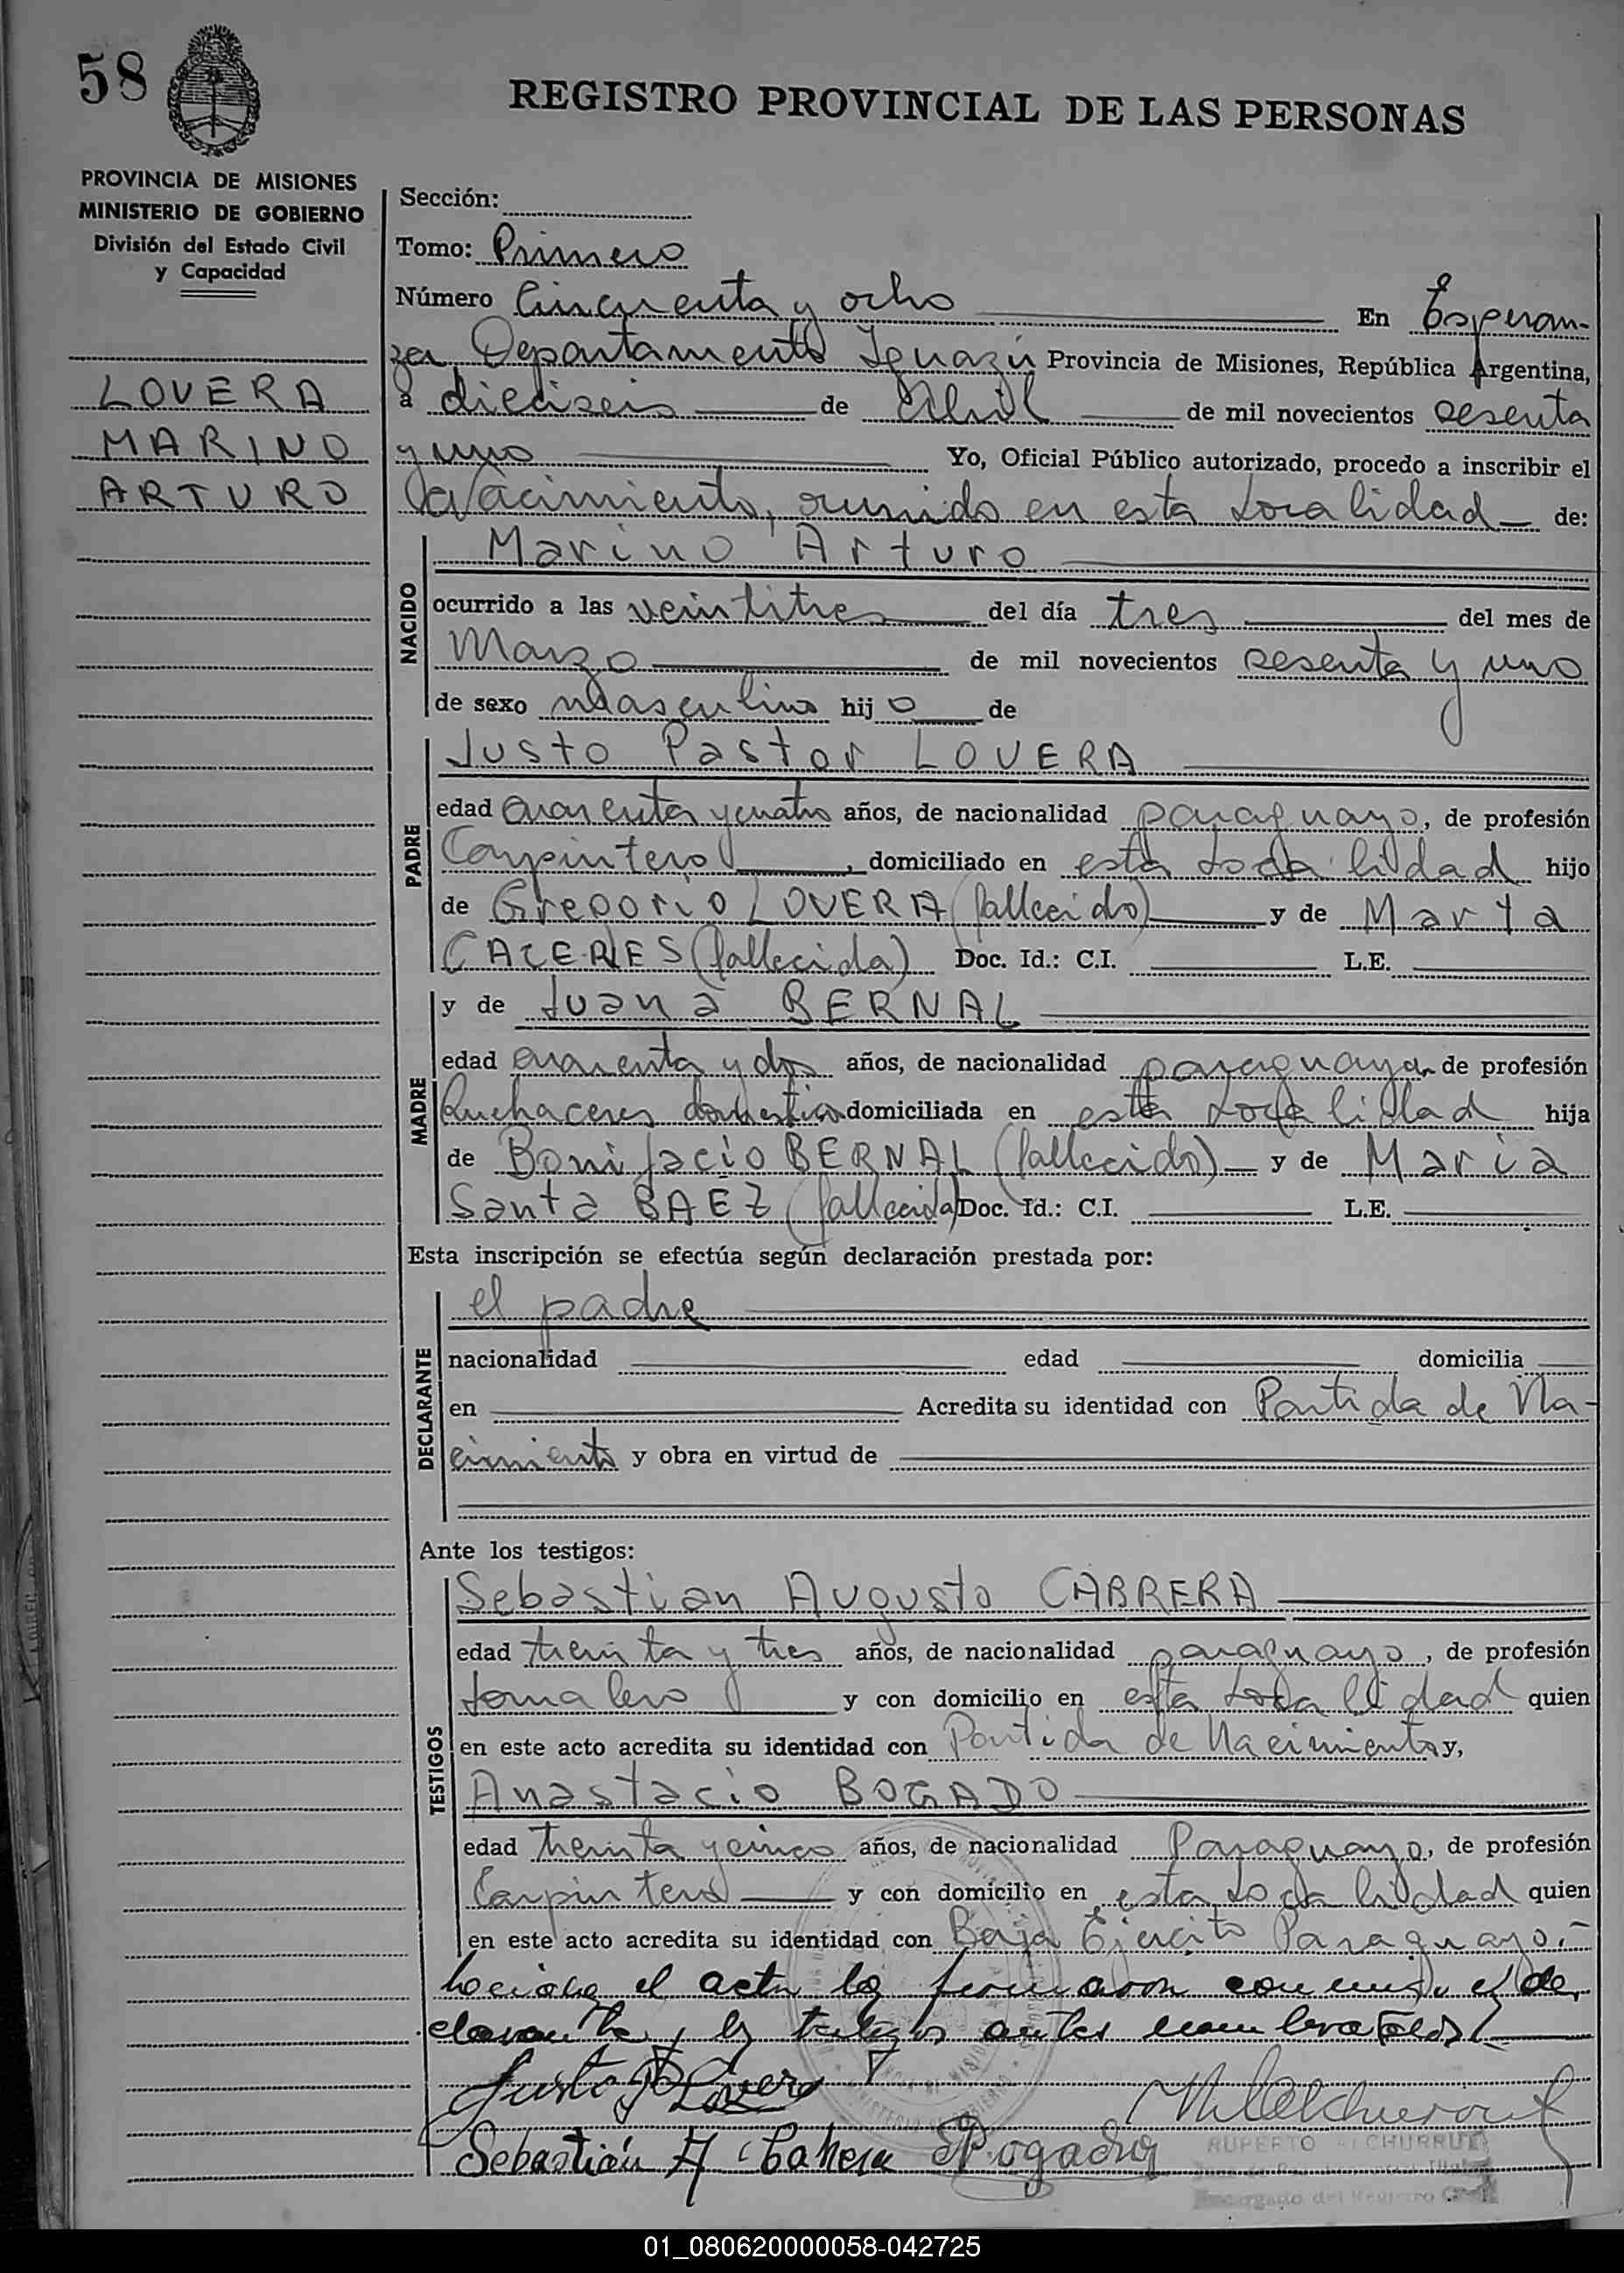 58
REGISTRO PROVINCIAL DE LAS PERSONAS
PROVINCIA DE MISIONES
MINISTERIO DE GOBIERNO
División del Estado Civil
y Capacidad
LOVERA
MARINO
ARTURO
Sección:
Tomo: Primero
Número Cincuenta y ocho En Esperan-
za Departamento Iguazú Provincia de Misiones, República Argentina,
a dieciseis de Abril de mil novecientos sesenta
y uno Yo, Oficial Público autorizado, procedo a inscribir el
Nacimiento, ocurrido en esta Localidad de:
NACIDO
Marino Arturo
ocurrido a las veintitres del día tres del mes de
Marzo de mil novecientos sesenta y uno
de sexo masculino hijo de
PADRE
Justo Pastor LOVERA
edad cuarenta y cuatro años, de nacionalidad paraguayo, de profesión
Carpintero, domiciliado en esta Localidad hijo
de Gregorio LOVERA (fallecido) y de María
CACERES (fallecida) Doc. Id.: C.I. L.E.
MADRE
y de Juana BERNAL
edad cuarenta y dos años, de nacionalidad paraguaya de profesión
Quehaceres domesticos domiciliada en esta Localidad hija
de Bonifacio BERNAL (fallecido) y de María
Santa BAEZ (fallecida) Doc. Id.: C.I. L.E.
Esta inscripción se efectúa según declaración prestada por:
DECLARANTE
el padre
nacionalidad edad domicilia
en Acredita su identidad con Partida de Na-
cimiento y obra en virtud de
Ante los testigos:
TESTIGOS
Sebastian Augusto CABRERA
edad treinta y tres años, de nacionalidad paraguayo, de profesión
Jornalero y con domicilio en esta Localidad quien
en este acto acredita su identidad con Partida de Nacimiento y,
Anastacio BOGADO
edad treinta y cinco años, de nacionalidad Paraguayo, de profesión
Carpintero y con domicilio en esta Localidad quien
en este acto acredita su identidad con Baja Ejercito Paraguayo.-
el acta la firmaron conmigo el de-
clarante y los testigos antes nombrados
Justo P Lovera
Sebastián A Cabrera Bogado
RUPERTO
Encargado del Registro
01_080620000058-042725